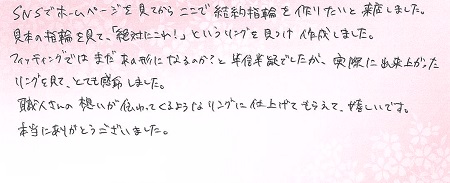 SNSでホームページを見てからここで結婚指輪を作りたいと来店しました。
見本の指輪を見て、「絶対にこれ！」というリングを見つけ作成しました。
フィッティングではまだあの形になるのか？と半信半疑でしたが、実際に出来上がった
リングを見て、とても感動しました。
職人さんの想いが伝わってくるようなリングに仕上げてもらえて、嬉しいです。
本当にありがとうございました。